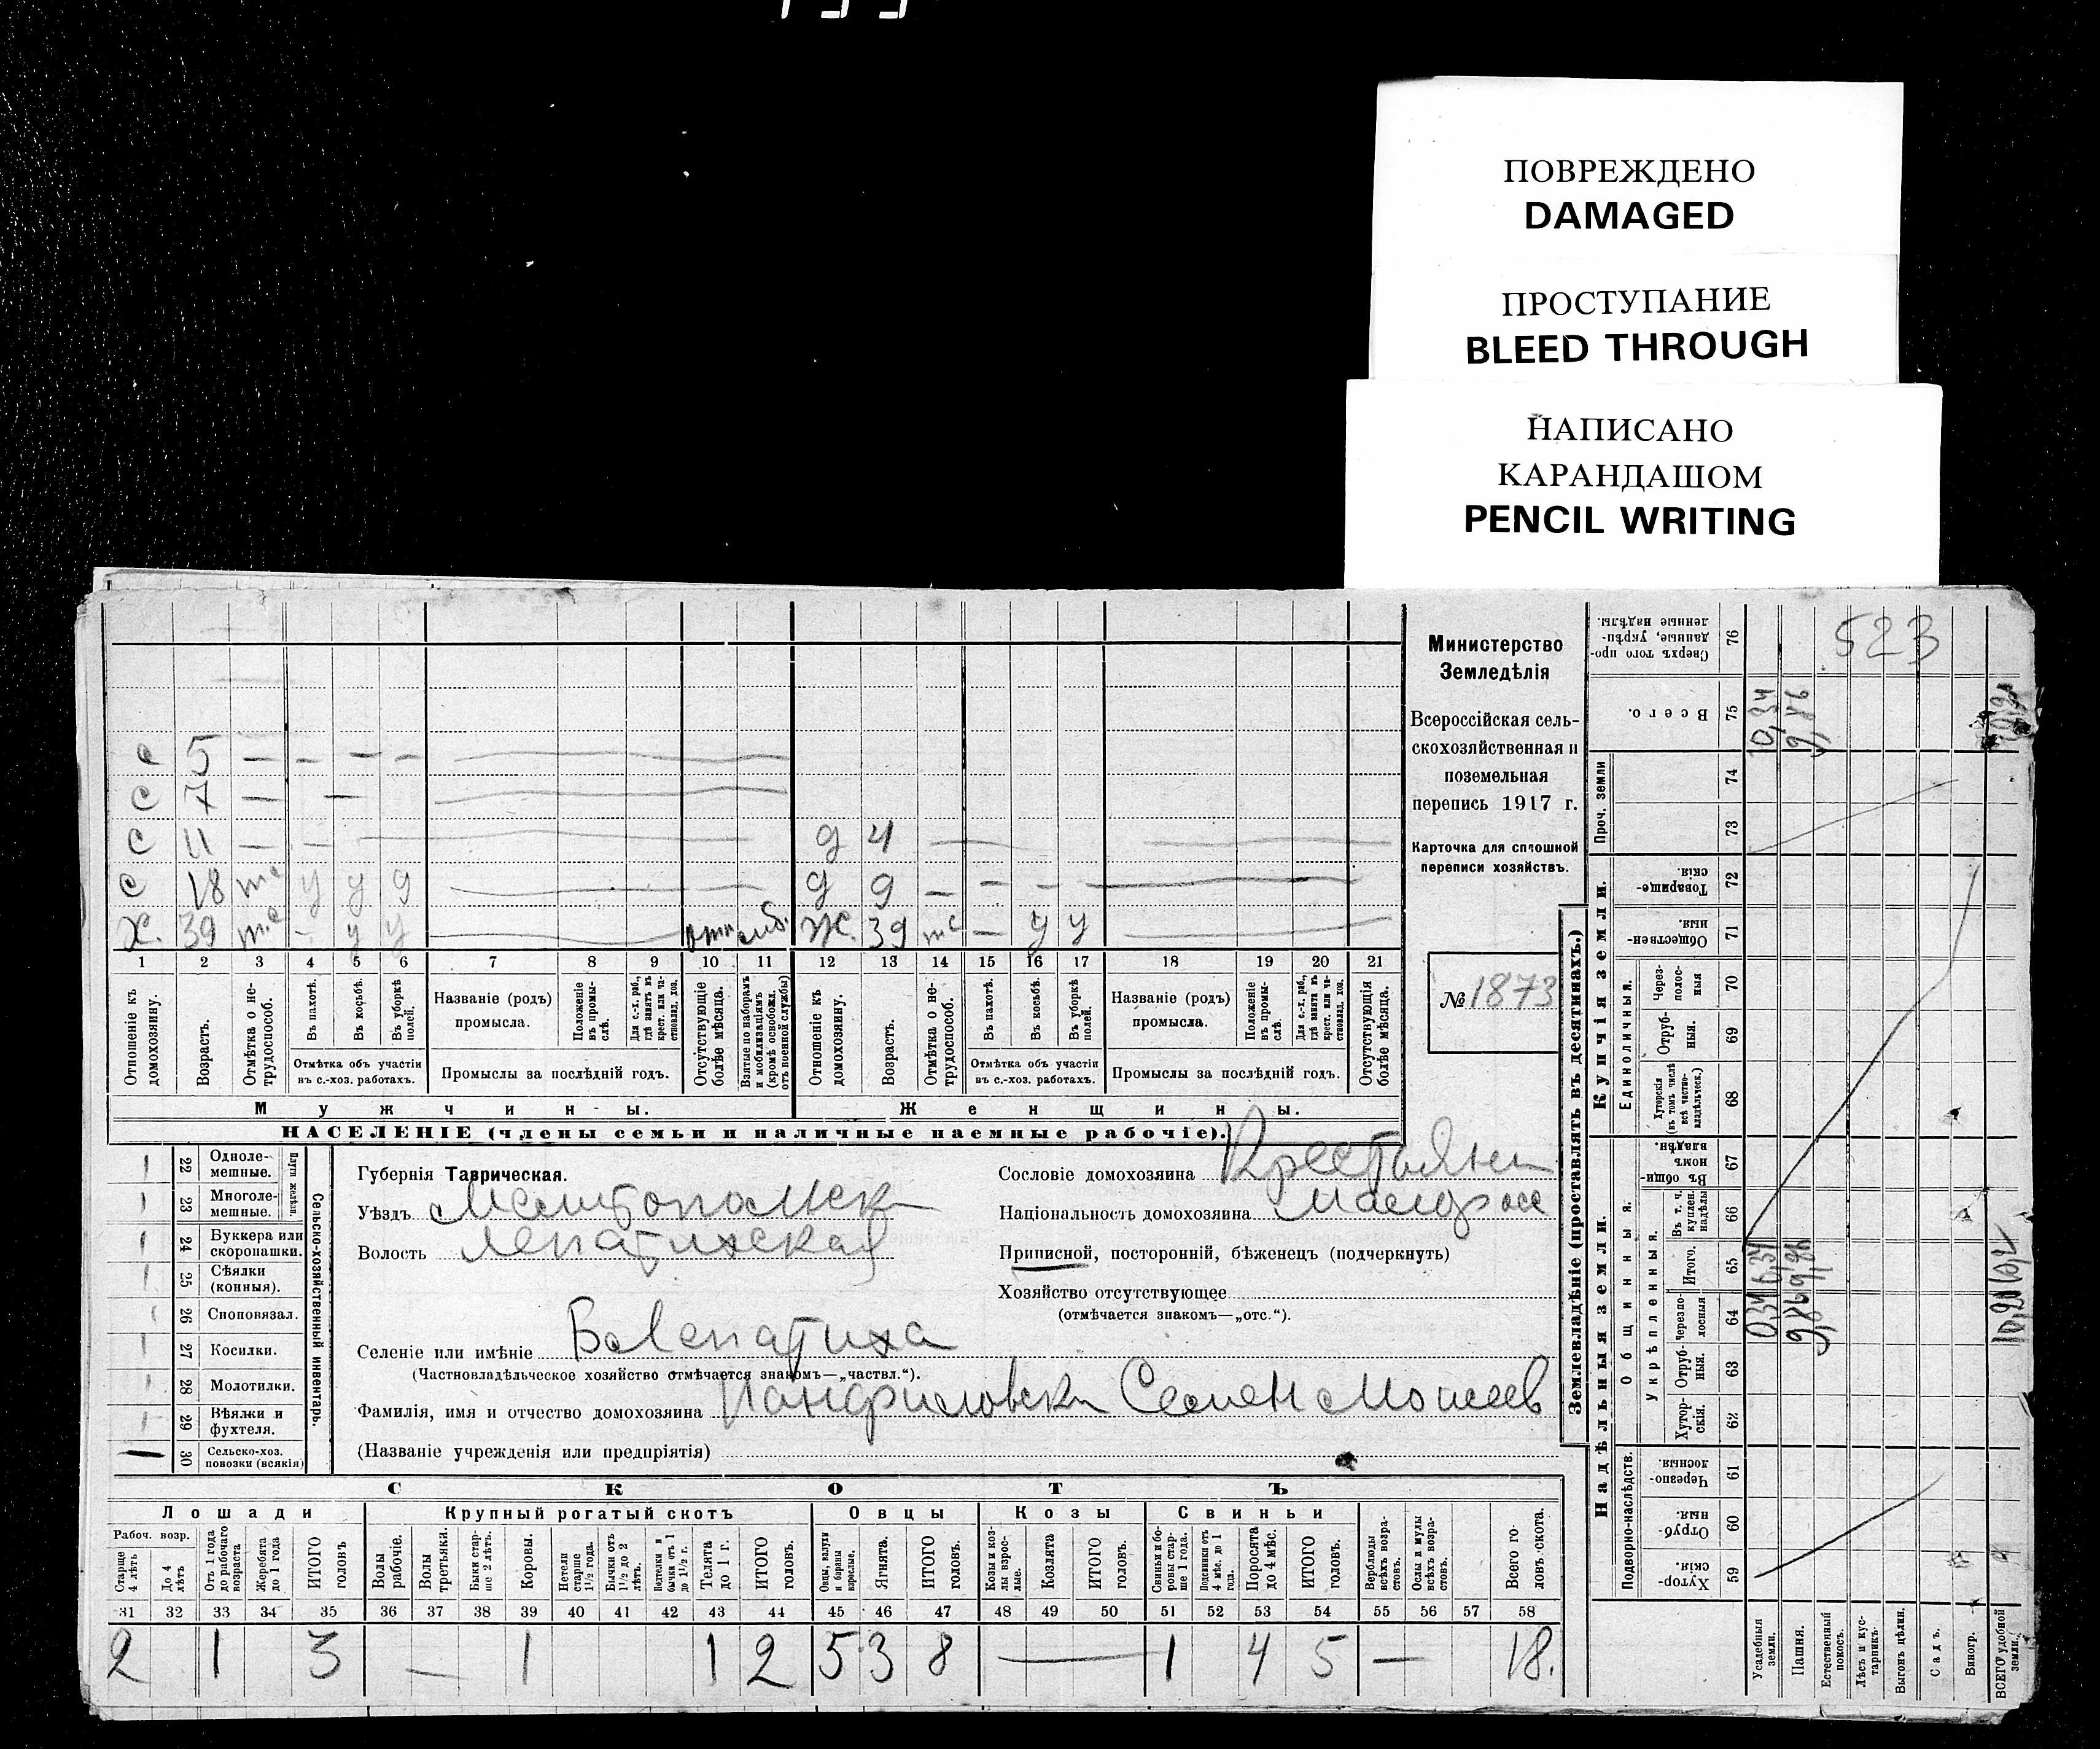 ПОВРЕЖДЕНО
DAMAGED
ПРОСТУПАНИЕ
BLEED THROUGH
НАПИСАНО
КАРАНДАШОМ
PENCIL WRITING
Министерство
Земледѣлія
Всероссійская сель-
скохозяйственная и
поземельная
перепись 1917 г.
Карточка для сплошной
переписи хозяйствъ.
№ 1873
523
с 5 — — — —
с 7 — —
с 11 — — д 4 —
с 18 у у д 9 — — —
х. 39 — у у отс моб. ж. 39 — у у
1 2 3 4 5 6 7 8 9 10 11 12 13 14 15 16 17 18 19 20 21
Отношеніе къ домохозяину.
Возрастъ.
Отмѣтка о не-трудоспособ.
Въ пахотѣ.
Въ косьбѣ.
Въ уборкѣ полей.
Отмѣтка объ участіи
въ с.-хоз. работахъ.
Названіе (родъ)
промысла.
Положеніе въ промы-слѣ.
Для с.-х. раб., где занятъ въ крест. или ча-стновлад. хоз.
Промыслы за послѣдній годъ.
Отсутствующіе болѣе мѣсяца.
Взятые по наборамъ и мобилизаціямъ (кромѣ освобожд. отъ военной службы)
Отношеніе къ домохозяину.
Возрастъ.
Отмѣтка о не-трудоспособ.
Въ пахотѣ.
Въ косьбѣ.
Въ уборкѣ полей.
Отмѣтка объ участіи
въ с.-хоз. работахъ.
Названіе (родъ)
промысла.
Положеніе въ промы-слѣ.
Для с.-х. раб., где занята въ крест. или ча-стновлад. хоз.
Промыслы за послѣдній годъ.
Отсутствующія болѣе мѣсяца.
Мужчины. Женщины.
НАСЕЛЕНІЕ (члены семьи и наличные наемные рабочіе).
Плуги желѣзн.
1 22 Одноле-мешные.
1 23 Многоле-мешные.
1 24 Буккера или скоропашки.
1 25 Сѣялки (конныя).
1 26 Сноповязал.
1 27 Косилки.
1 28 Молотилки.
1 29 Вѣялки и фухтеля.
— 30 Сельско-хоз. повозки (всякія)
Сельско-хозяйственный инвентарь.
Губернія Таврическая.
Уѣздъ Мелитопольск
Волость Лепатихская
Селеніе или имѣніе Б Лепатиха
(Частновладѣльческое хозяйство отмѣчается знакомъ—„частвл.“).
Фамилія, имя и отчество домохозяина Панфиловски Семен Мосеев
(Названіе учрежденія или предпріятія)
Сословіе домохозяина Крестьянин
Національность домохозяина Малорос
Приписной, посторонній, бѣженецъ (подчеркнуть)
Хозяйство отсутствующее
(отмѣчается знакомъ—„отс.“).
СКОТЪ
Лошади Крупный рогатый скотъ Овцы Козы Свиньи
Рабоч. возр.
Старше 4 лѣтъ
До 4 лѣтъ
Отъ 1 года до рабочаго возраста
Жеребята до 1 года
ИТОГО головъ
Волы рабочіе.
Волы третьяки.
Быки стар-ше 2 лѣтъ.
Коровы.
Нетели старше 1½ года.
Бычки отъ 1½ до 2 лѣтъ.
Подтелки и бычки отъ 1 до 1½ г.
Телята до 1 г.
ИТОГО головъ.
Овцы, валухи и бараны взрослые.
Ягнята.
ИТОГО головъ.
Козы и коз-лы взрос-лые.
Козлята
ИТОГО головъ.
Свиньи и бо-ровы стар-ше 1 года.
Подсвинки отъ 4 мѣс. до 1 года.
Поросята до 4 мѣс.
ИТОГО головъ.
Верблюды всѣхъ возра-стовъ.
Ослы и мулы всѣхъ возра-стовъ.
Всего го-ловъ скота.
31 32 33 34 35 36 37 38 39 40 41 42 43 44 45 46 47 48 49 50 51 52 53 54 55 56 57 58
2 1 3 — 1 1 2 5 3 8 — 1 4 5 — 18.
Землевладѣніе (проставлять въ десятинахъ.)
Надѣльныя земли. Купчія земли.
Подворно-наслѣдств.
Общинныя.
Укрѣпленныя.
Единоличныя.
Проч. земли
Хутор-скія. 59
Отруб-ныя. 60
Черезпо-лосныя. 61
Хутор-скія. 62
Отруб-ныя. 63
Черезпо-лосныя 64
Итого. 65
Въ т. ч. куплен. надѣлы 66
Въ общин-номъ владѣн. 67
Хуторскія (въ томъ числѣ всѣ частно-владѣльческ.) 68
Отруб-ныя. 69
Через-полос-ныя 70
Обществен-ныя. 71
Товарище-скія. 72
73
74
Всего. 75
Сверхъ того про-данные, укрѣп-ленные надѣлы. 76
Усадебныя земли. 0,34 0,34 0,34
Пашня. 9,86 9,86 9,86
Естественный покосъ.
Лѣсъ и кус-тарникъ.
Выгонъ цѣлин.
Садъ.
Виногр.
ВСЕГО удобной земли.